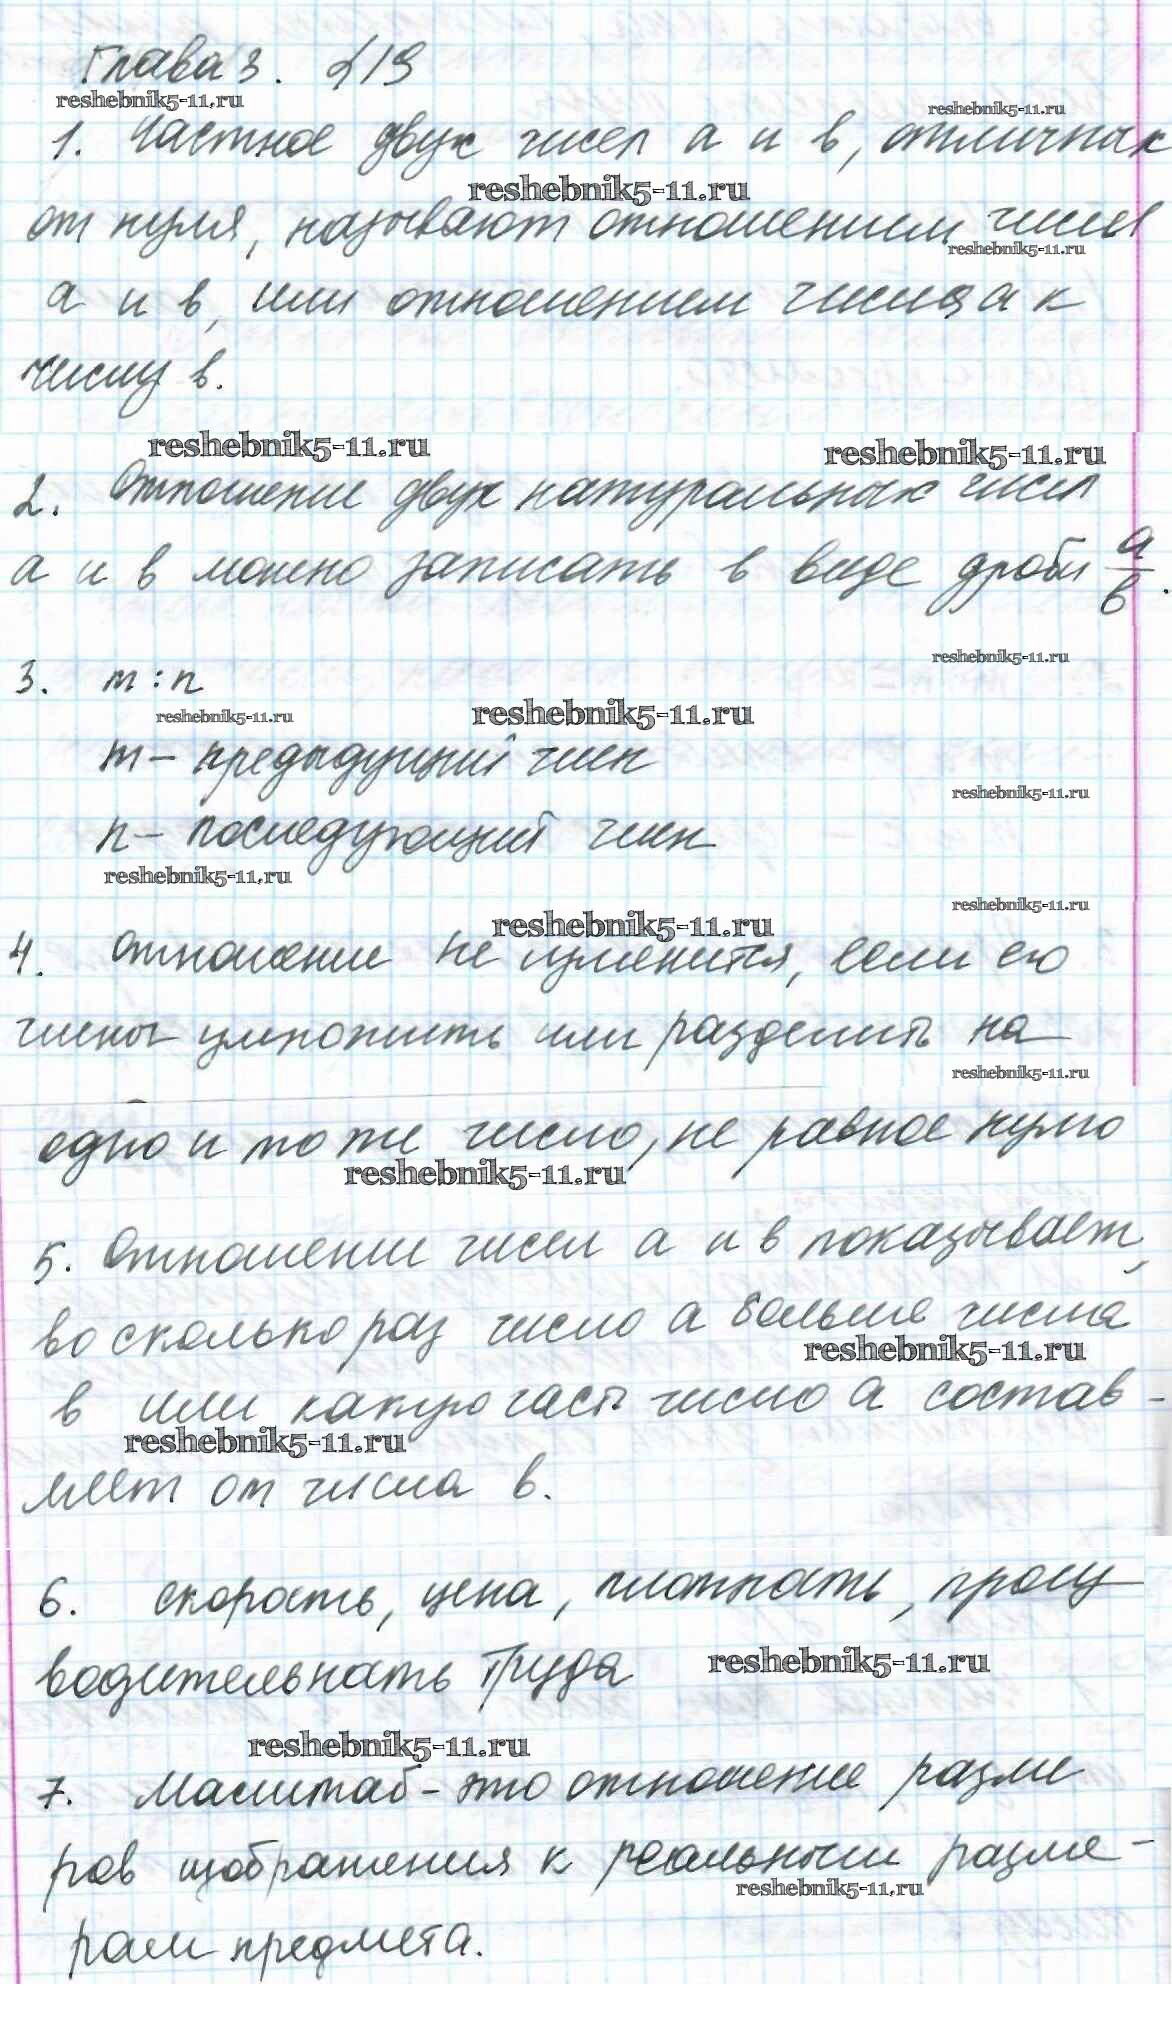 Глава 3. §19
reshebnik5-11.ru
reshebnik5-11.ru
1. Частное двух чисел а и в, отличных
reshebnik5-11.ru
от нуля, называют отношением чисел
reshebnik5-11.ru
а и в, или отношением числа а к
числу в.
reshebnik5-11.ru
reshebnik5-11.ru
2. Отношение двух натуральных чисел
а и в можно записать в виде дроби а/в.
reshebnik5-11.ru
3. m : n
reshebnik5-11.ru
reshebnik5-11.ru
m – предыдущий член
reshebnik5-11.ru
n – последующий член
reshebnik5-11.ru
reshebnik5-11.ru
reshebnik5-11.ru
4. Отношение не изменится, если его
члены умножить или разделить на
reshebnik5-11.ru
одно и то же число, не равное нулю
reshebnik5-11.ru
5. Отношение чисел а и в показывает,
во сколько раз число а больше числа
reshebnik5-11.ru
в или какую часть число а состав-
reshebnik5-11.ru
ляет от числа в.
6. скорость, цена, плотность, произ
водительность труда
reshebnik5-11.ru
reshebnik5-11.ru
7. Масштаб – это отношение разме
ров изображения к реальным разме-
reshebnik5-11.ru
рам предмета.